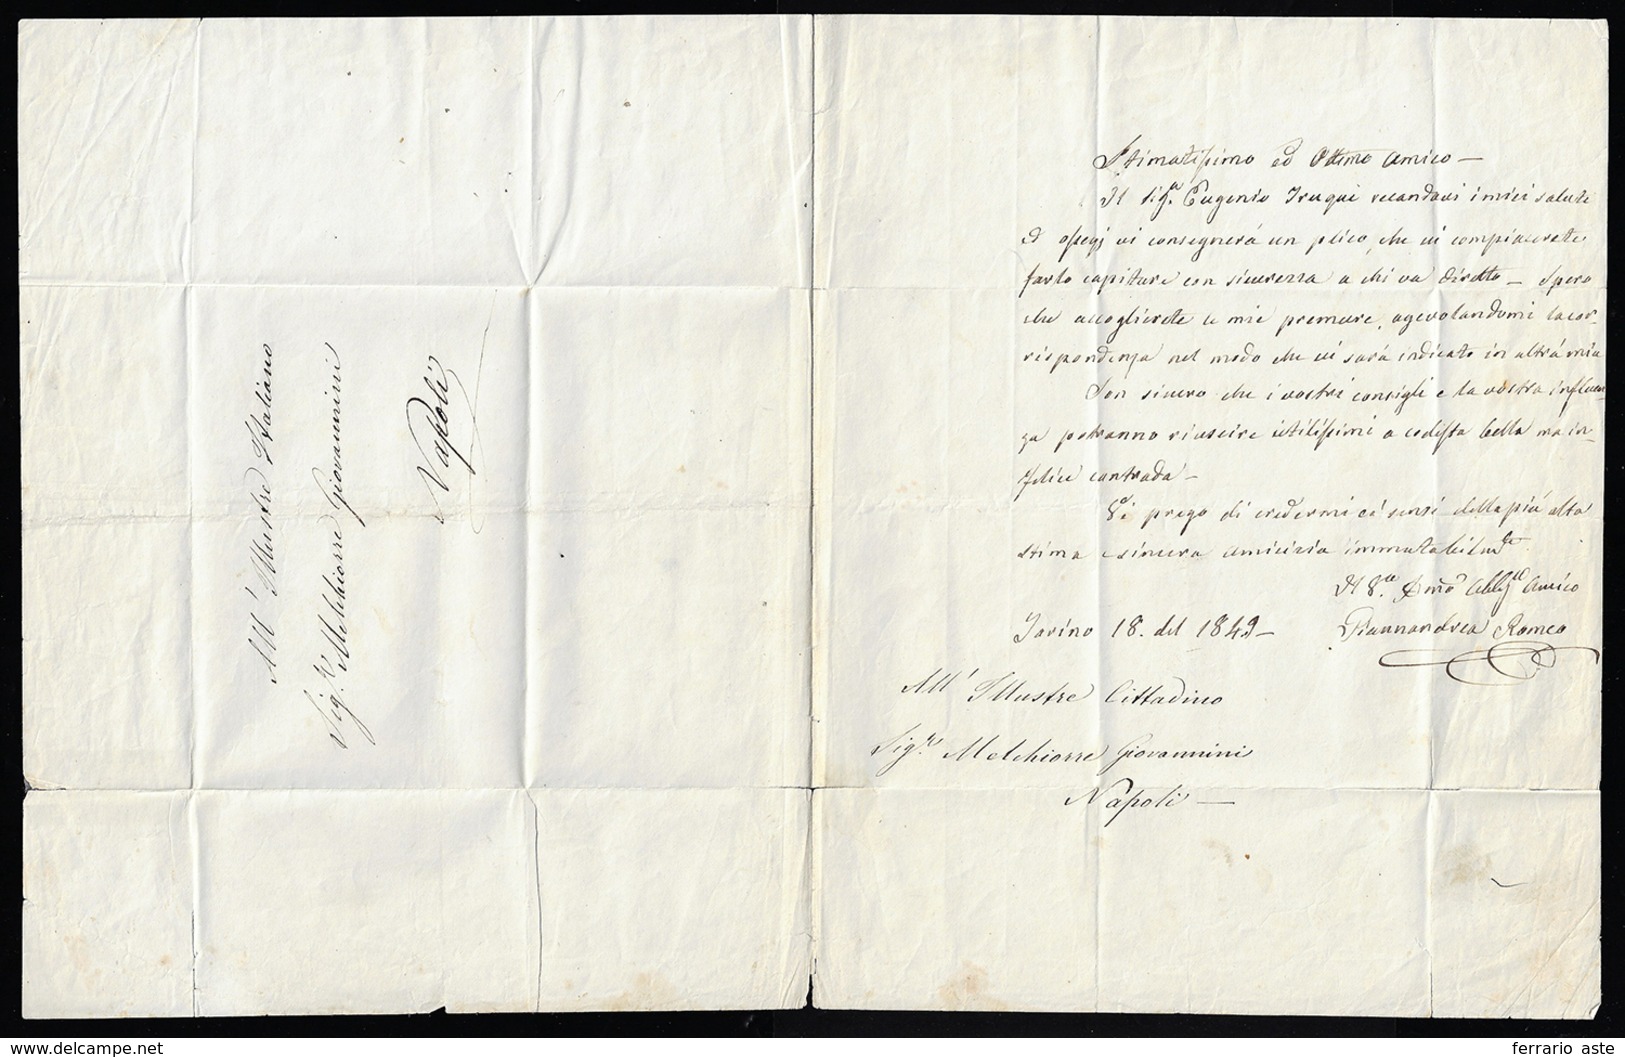 All' Illustre Italiano
Sig.re Melchiorre Giovannini
Napoli
Stimatissimo ed Ottimo Amico —
Il Sig.r Eugenio Truqui recandovi i miei saluti
ed ossequj vi consegnerà un plico, che vi compiacerete
farlo capitare con sicurezza a chi va diretto — Spero
che accoglierete le mie premure, agevolandomi la cor-
rispondenza nel modo che vi sarà indicato in altra mia
Son sicuro che i vostri consigli e la vostra influen-
za potranno riuscire utilissimi a codesta bella ma in-
felice contrada —
Vi prego di credermi ai sensi della più alta
stima e sincera amicizia immutabilm.te
Il V.ro Dmo Obblg.mo Amico
Torino 18. del 1849 — Giannandrea Romeo
All' Illustre Cittadino
Sig.re Melchiorre Giovannini
Napoli —
ferrario aste